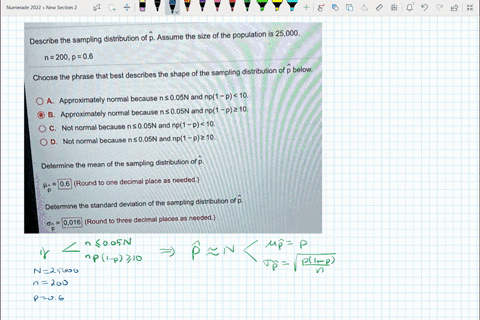 Numerade 2022 > New Section 2
Describe the sampling distribution of p̂. Assume the size of the population is 25,000.
n = 200, p = 0.6
Choose the phrase that best describes the shape of the sampling distribution of p̂ below.
A. Approximately normal because n ≤ 0.05N and np(1 − p) < 10.
B. Approximately normal because n ≤ 0.05N and np(1 − p) ≥ 10.
C. Not normal because n ≤ 0.05N and np(1 − p) < 10.
D. Not normal because n ≤ 0.05N and np(1 − p) ≥ 10.
Determine the mean of the sampling distribution of p̂.
μp̂ = 0.6 (Round to one decimal place as needed.)
Determine the standard deviation of the sampling distribution of p̂.
σp̂ = 0.016 (Round to three decimal places as needed.)
if < n ≤ 0.05N
np(1-p) ≥ 10
⇒ p̂ ≈ N < μp̂ = p
σp̂ = √(p(1-p)/n)
N = 25000
n = 200
p = 0.6